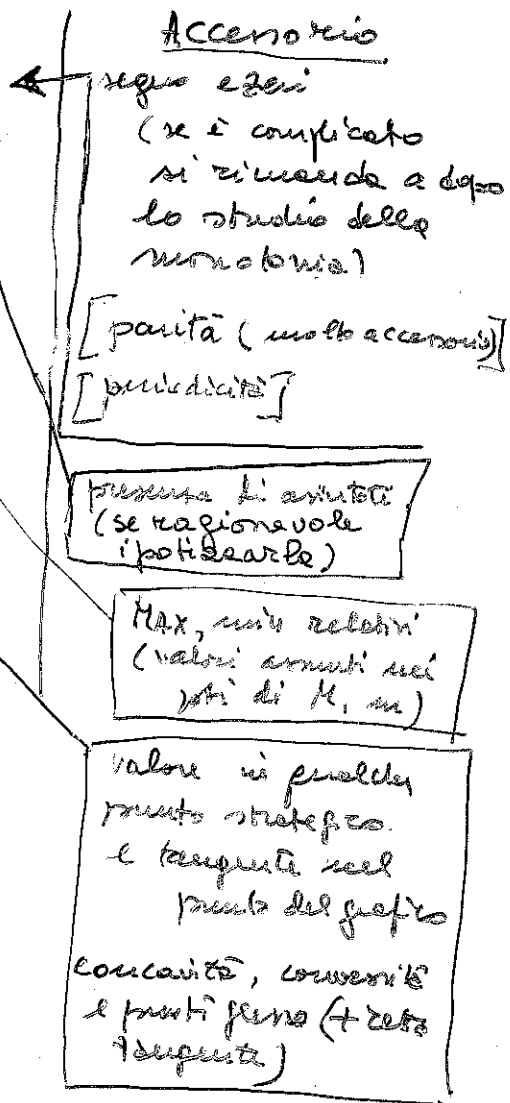 Accessorio
segno e zeri
(se è complicato
si rimanda a dopo
lo studio della
monotonia)
[parità (molto accessorio)]
[periodicità]
presenza di asintoti
(se ragionevole
ipotizzarla)
MAX, min relativi
(valori assunti nei
pti di M, m)
valore in qualche
punto strategico
e tangente nel
punto del grafico
concavità, convessità
e punti flesso (+ retta
tangente)